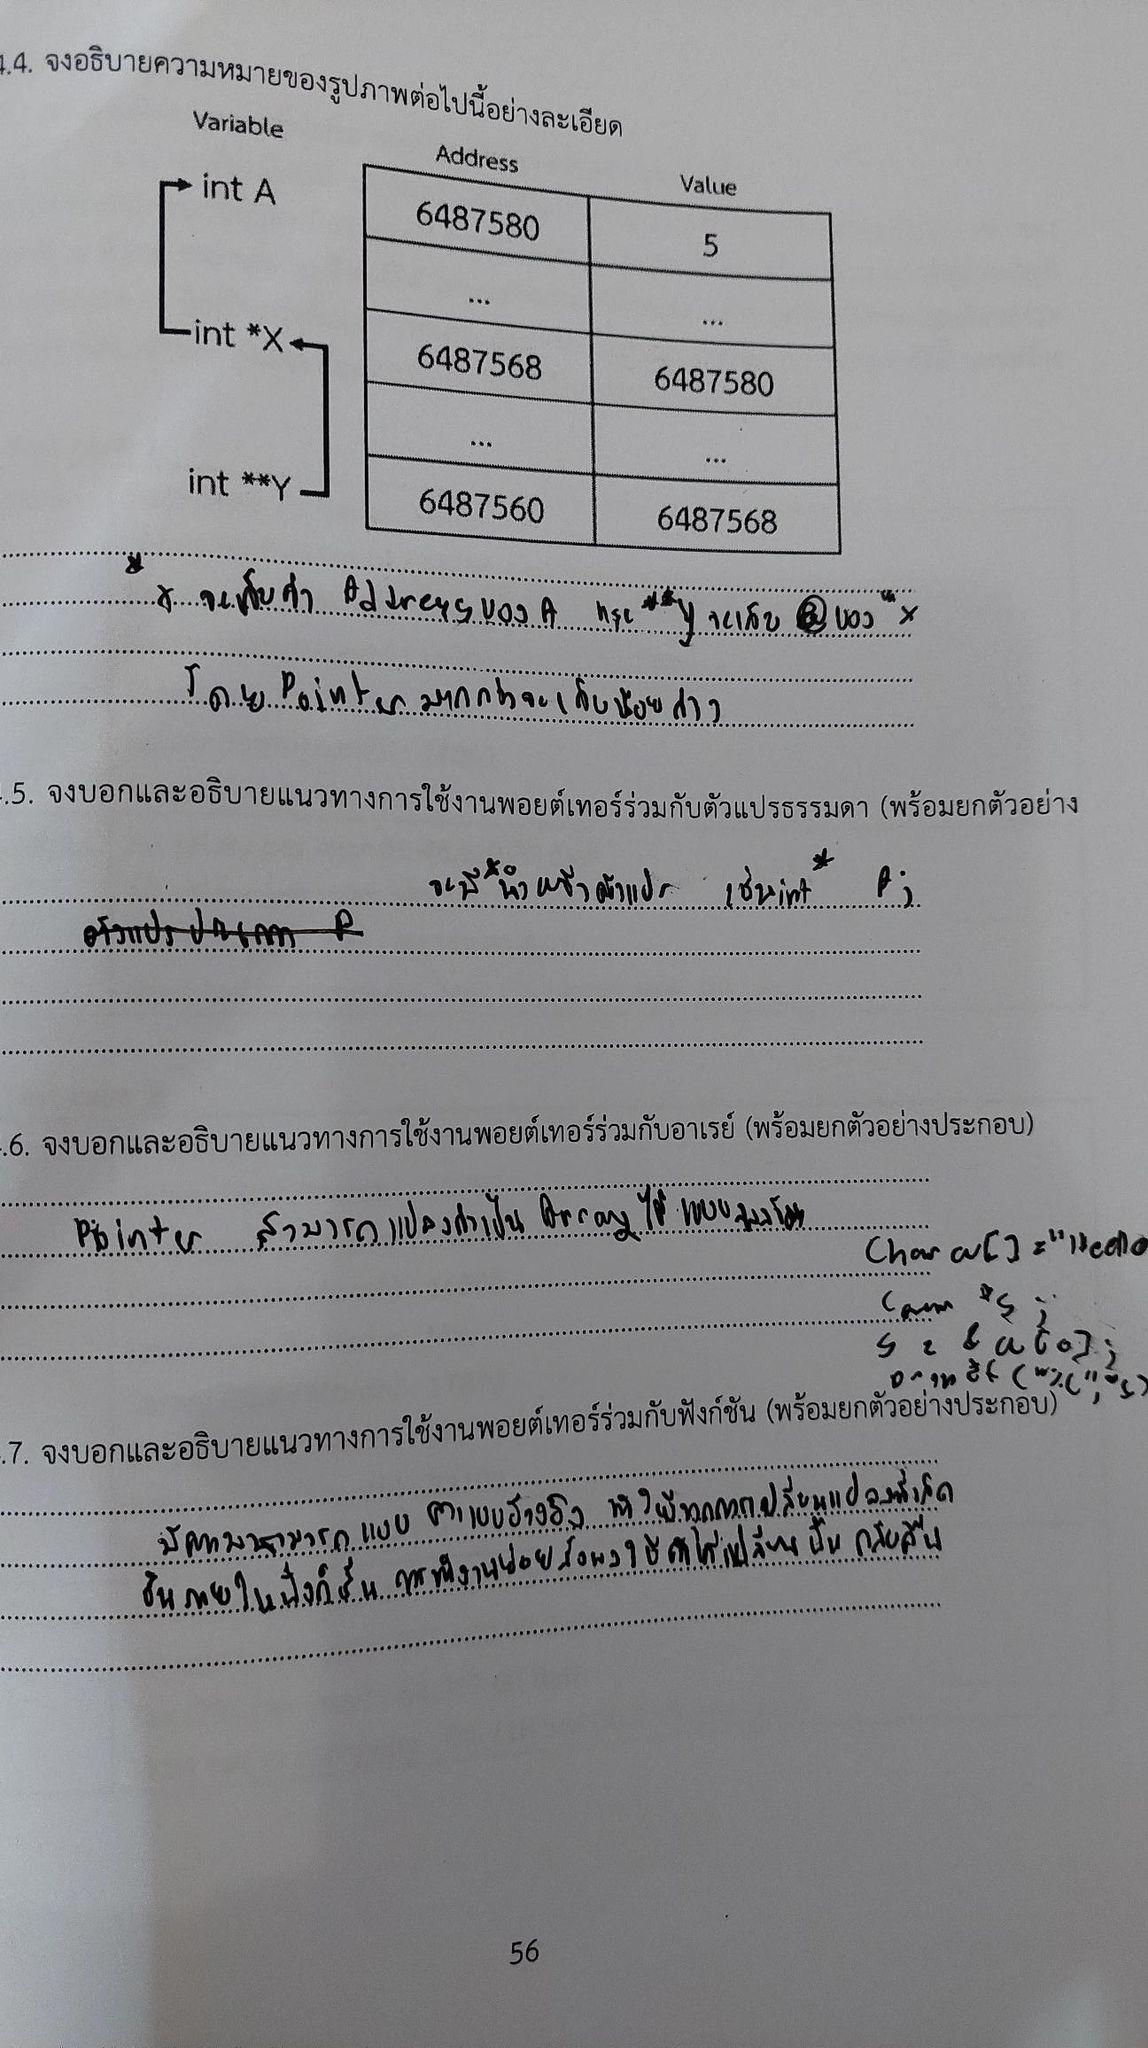 4.4. จงอธิบายความหมายของรูปภาพต่อไปนี้อย่างละเอียด
Variable Address Value
int A 6487580 5
... ...
int *X 6487568 6487580
... ...
int **Y 6487560 6487568
* x จะเก็บค่า Address ของ A และ **y จะเก็บ @ ของ *x
โดย Pointer
.5. จงบอกและอธิบายแนวทางการใช้งานพอยต์เทอร์ร่วมกับตัวแปรธรรมดา (พร้อมยกตัวอย่าง
จะมี * นำหน้าตัวแปร เช่น int * P;
.6. จงบอกและอธิบายแนวทางการใช้งานพอยต์เทอร์ร่วมกับอาเรย์ (พร้อมยกตัวอย่างประกอบ)
Pointer สามารถแปลงค่าเป็น Array ได้
Char a[] = "Hello
*s ;
s = & a[0];
.7. จงบอกและอธิบายแนวทางการใช้งานพอยต์เทอร์ร่วมกับฟังก์ชัน (พร้อมยกตัวอย่างประกอบ)
มีความสามารถแบบ อ้างอิง ทำให้ทุกการเปลี่ยนแปลงที่เกิด
ขึ้นภายในฟังก์ชั่น
56